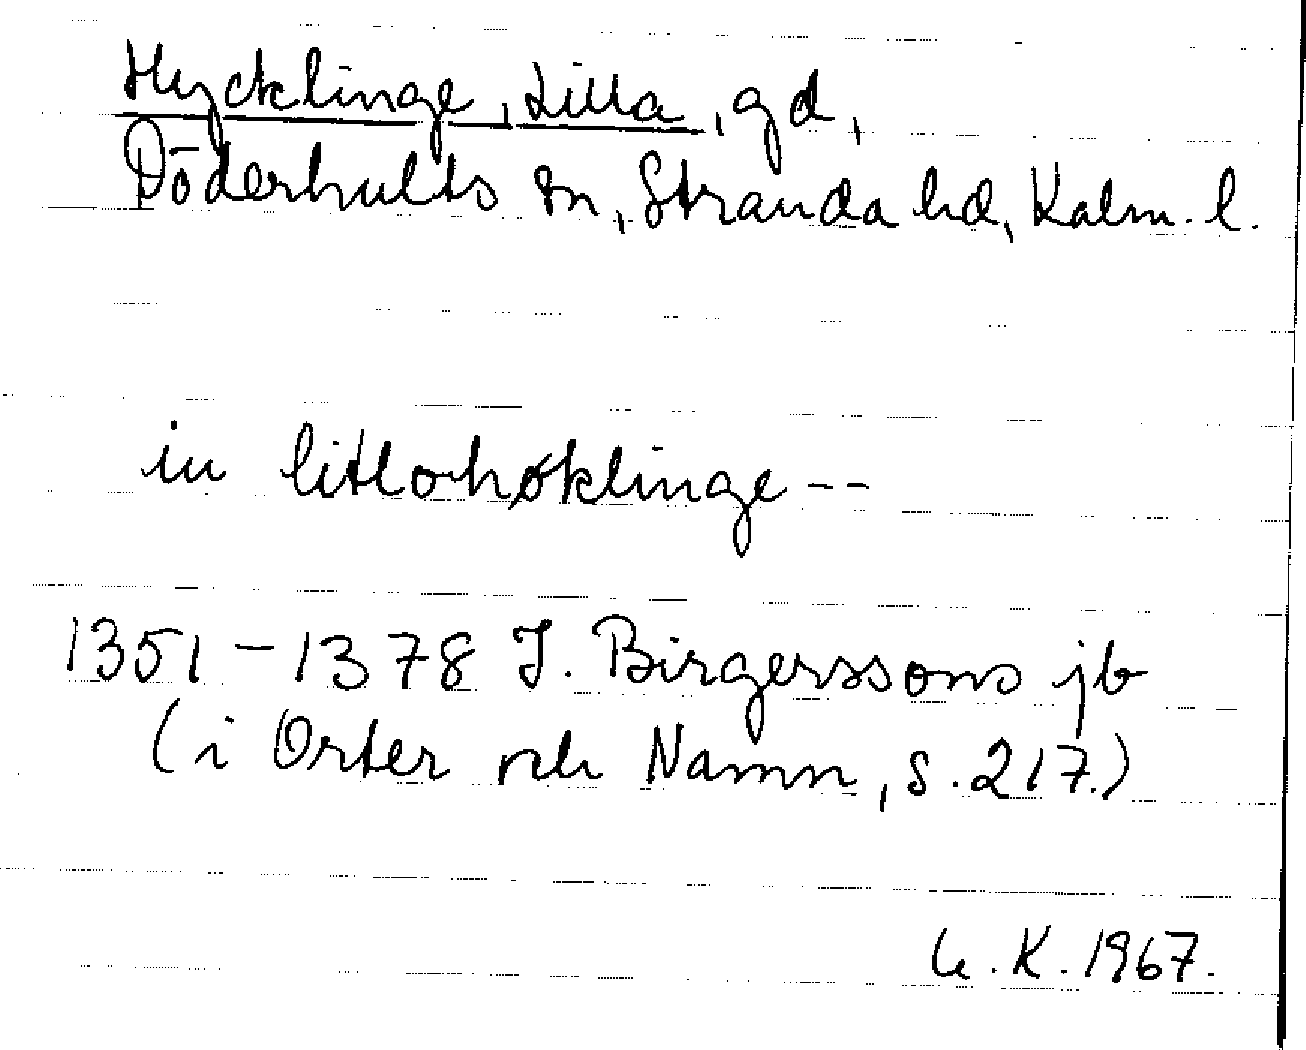 Hycklinge, Lilla, gd,
Döderhults sn, Stranda hd, Kalm. l.
in litlohøklinge --
1351-1378 J. Birgerssons jb
(i Orter och Namn, s. 217.)
K. 1967.